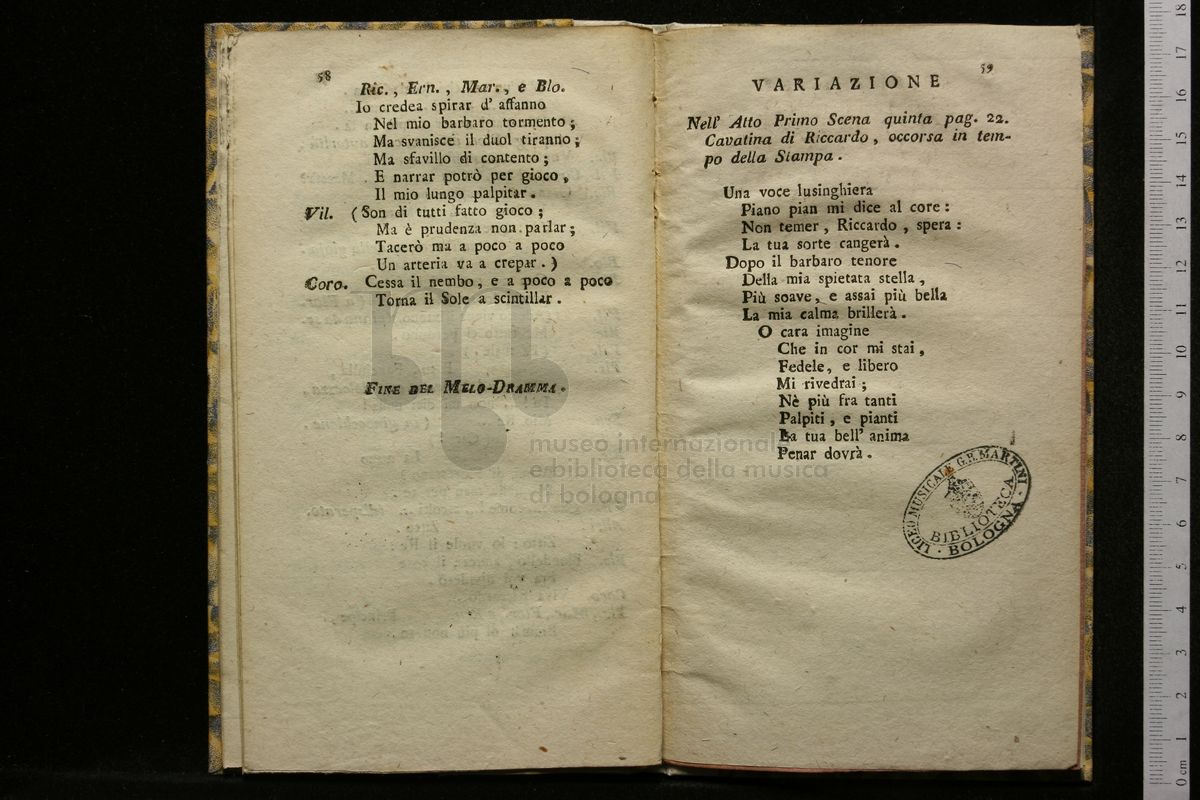 58
Ric., Ern., Mar., e Blo.
Io credea spirar d' affanno
Nel mio barbaro tormento;
Ma svanisce il duol tiranno;
Ma sfavillo di contento;
E narrar potrò per gioco,
Il mio lungo palpitar.
Vil. (Son di tutti fatto gioco;
Ma è prudenza non parlar;
Tacerò ma a poco a poco
Un arteria va a crepar.)
Coro. Cessa il nembo, e a poco a poco
Torna il Sole a scintillar.
FINE DEL MELO-DRAMMA.
59
VARIAZIONE
Nell' Atto Primo Scena quinta pag. 22.
Cavatina di Riccardo, occorsa in tem-
po della Stampa.
Una voce lusinghiera
Piano pian mi dice al core:
Non temer, Riccardo, spera:
La tua sorte cangerà.
Dopo il barbaro tenore
Della mia spietata stella,
Più soave, e assai più bella
La mia calma brillerà.
O cara imagine
Che in cor mi stai,
Fedele, e libero
Mi rivedrai;
Nè più fra tanti
Palpiti, e pianti
La tua bell' anima
Penar dovrà.
LICEO MUSICALE G.B. MARTINI
BIBLIOTECA
· BOLOGNA ·
museo internazionale
e biblioteca della musica
di bologna
0 cm 1 2 3 4 5 6 7 8 9 10 11 12 13 14 15 16 17 18